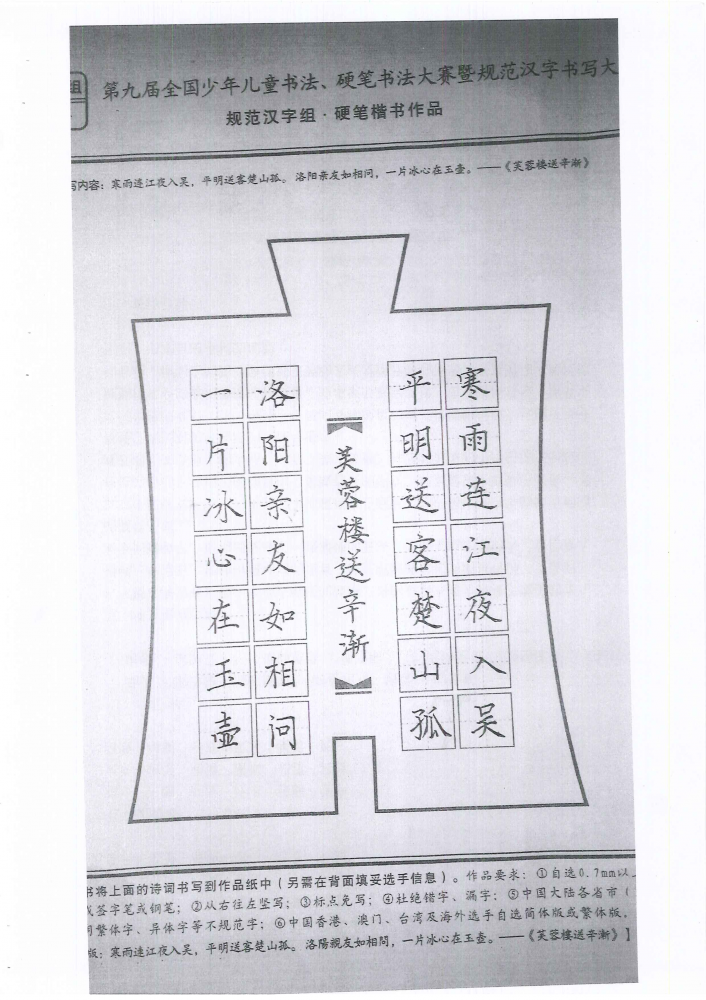 组
第九届全国少年儿童书法、硬笔书法大赛暨规范汉字书写大
规范汉字组·硬笔楷书作品
写内容：寒雨连江夜入吴，平明送客楚山孤。洛阳亲友如相问，一片冰心在玉壶。——《芙蓉楼送辛渐》
寒雨连江夜入吴
平明送客楚山孤
芙蓉楼送辛渐
洛阳亲友如相问
一片冰心在玉壶
书将上面的诗词书写到作品纸中（另需在背面填妥选手信息）。作品要求：①自选0.7mm以
或签字笔或钢笔；②从右往左竖写；③标点免写；④杜绝错字、漏字；⑤中国大陆各省市（
用繁体字、异体字等不规范字；⑥中国香港、澳门、台湾及海外选手自选简体版或繁体版，
版：寒雨連江夜入吴，平明送客楚山孤。洛陽親友如相問，一片冰心在玉壺。——《芙蓉楼送辛漸》】